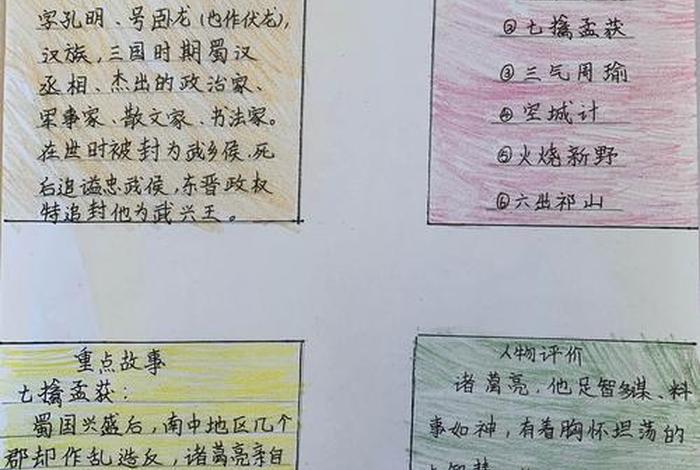 字孔明、号卧龙(也作伏龙),
汉族,三国时期蜀汉
丞相、杰出的政治家、
军事家、散文家、书法家。
在世时被封为武乡侯,死
后追谥忠武侯,东晋政权
特追封他为武兴王。
②七擒孟获
③三气周瑜
④空城计
⑤火烧新野
⑥六出祁山
重点故事
七擒孟获:
蜀国兴盛后,南中地区几个
郡却作乱造反,诸葛亮亲自
人物评价
诸葛亮,他足智多谋、料
事如神,有着胸怀坦荡的